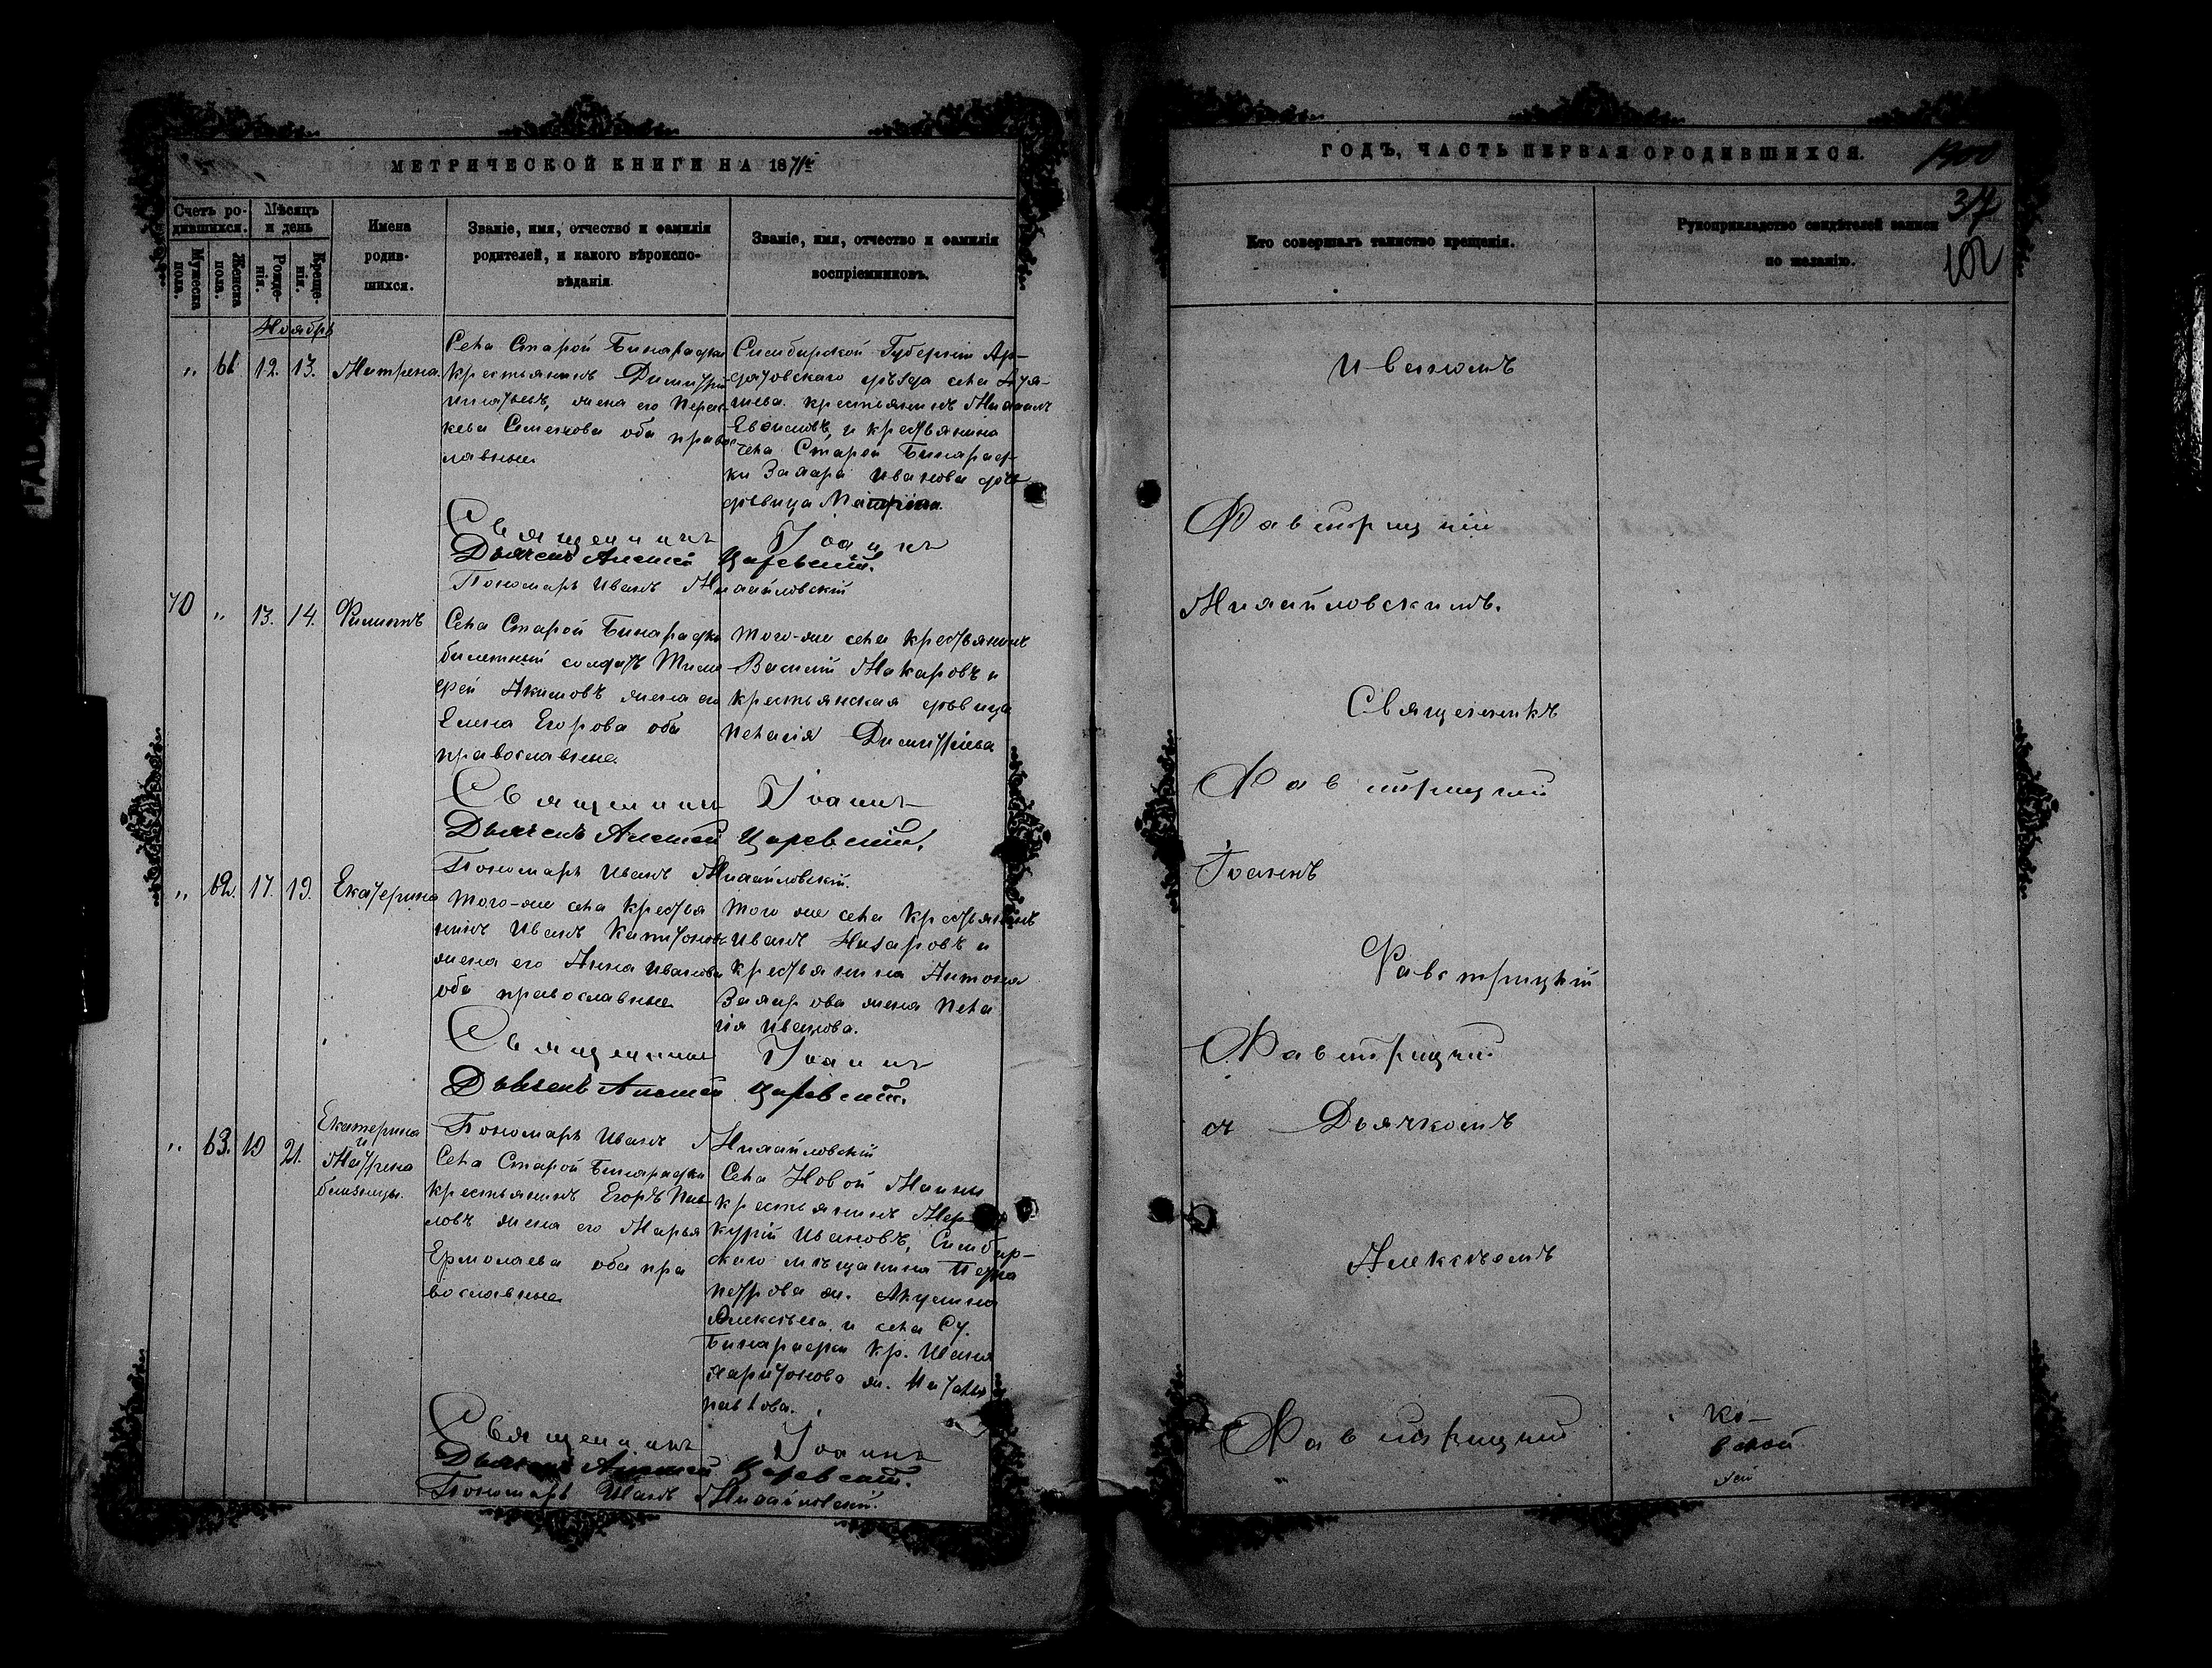 МЕТРИЧЕСКОЙ КНИГИ НА 18
Счетъ ро-
дившихся.
Мужеска
пола.
Женска
пола.
Мѣсяцъ
и день
Рожде-
нія.
Креще-
нія.
Имена
родив-
шихся.
Званіе, имя, отчество и фамилія
родителей, и какого вѣроиспо-
вѣданія.
Званіе, имя, отчество и фамилія
воспріемниковъ.
Ноябрь
„ 61. 12. 13. Матрена.
Села Старой Бинарадки
крестьянинъ Димитрій
жена его Параскева
Семенова оба право-
славные
Симбирской Губерніи Ар-
датовскаго уѣзда села
крестьянинъ
и крестьянина
села Старой Бинарад-
ки Захара Иванова дочь
дѣвица Матрена.
Священникъ Іоаннъ
Дьячекъ Алексѣй Царевскій.
Пономарь Иванъ Михайловскій
70 „ 13. 14. Филиппъ
Села Старой Бинарадки
билетный солдатъ Тимо-
фей Акимовъ жена его
Елена Егорова оба
православные.
Того-же села крестьянинъ
Василій Макаровъ и
крестьянская дѣвица
Пелагія Димитріева
Священникъ Іоаннъ
Дьячекъ Алексѣй Царевскій.
Пономарь Иванъ Михайловскій.
„ 62. 17. 19. Екатерина
Того-же села крестья
нинъ Иванъ Капитоновъ
жена его Анна Иванова
оба православные
Того же села крестьянинъ
Иванъ Назаровъ и
крестьянина Антона
Захарова жена Пела
гія Иванова.
Священникъ Іоаннъ
Дьячекъ Алексѣй Царевскій.
Пономарь Иванъ Михайловскій
„ 63. 19 21.
Екатерина
и
Матрена
близнецы.
Села Старой Бинарадки
крестьянинъ Егоръ Пав-
ловъ жена его Марья
Ермолаева оба пра
вославные
Села Новой
крестьянинъ Мер-
курій Ивановъ, Симбир-
скаго мѣщанина Петра
Петрова ж. Акулина
Алексѣева, и села Ст.
Бинарадки кр. Ивана
Харитонова ж. Наталья
Павлова.
Священникъ Іоаннъ
Дьячекъ Алексѣй Царевскій.
Пономарь Иванъ Михайловскій.
ГОДЪ, ЧАСТЬ ПЕРВАЯ О РОДИВШИХСЯ.
37
102
Кто совершалъ таинство крещенія.
Рукоприкладство свидѣтелей записи
по желанію.
Иваномъ
Фавстрицкій
Михайловскимъ.
Священникъ
Фавстрицкій
Іоаннъ
Фавстрицкій
Фавстрицкій
съ Дьячкомъ
Алексѣемъ
Фавстрицкій